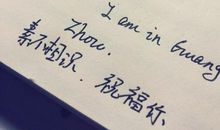 I am in Guang
Zhou.
素不相识. 祝福你